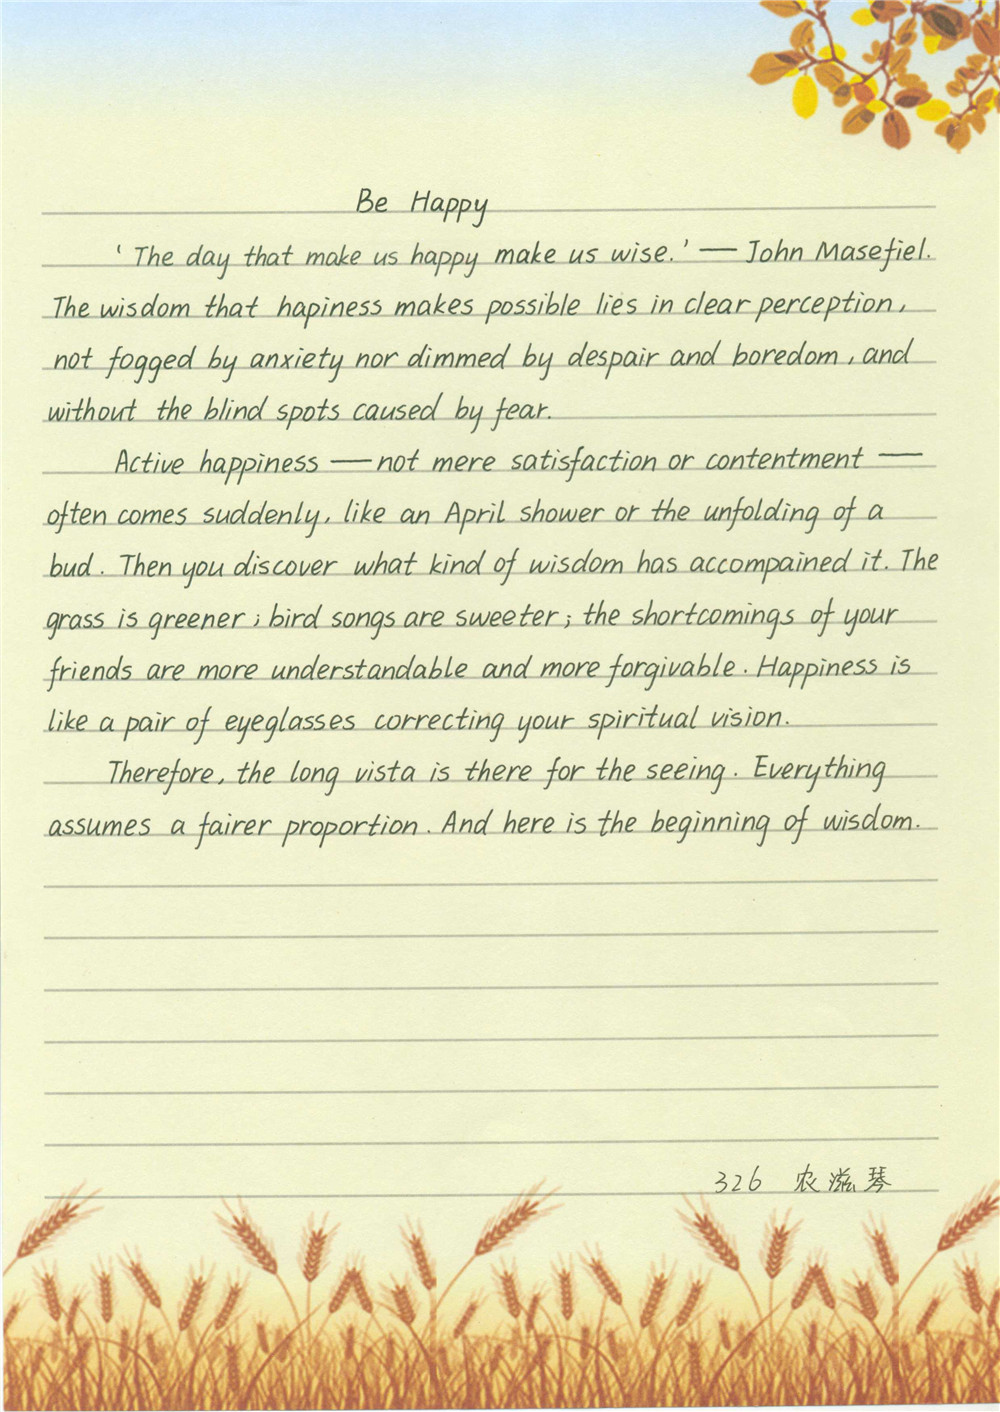 Be Happy
‘The day that make us happy make us wise.’ — John Masefiel.
The wisdom that hapiness makes possible lies in clear perception,
not fogged by anxiety nor dimmed by despair and boredom, and
without the blind spots caused by fear.
Active happiness — not mere satisfaction or contentment —
often comes suddenly, like an April shower or the unfolding of a
bud. Then you discover what kind of wisdom has accompained it. The
grass is greener; bird songs are sweeter; the shortcomings of your
friends are more understandable and more forgivable. Happiness is
like a pair of eyeglasses correcting your spiritual vision.
Therefore, the long vista is there for the seeing. Everything
assumes a fairer proportion. And here is the beginning of wisdom.
326 农滋琴